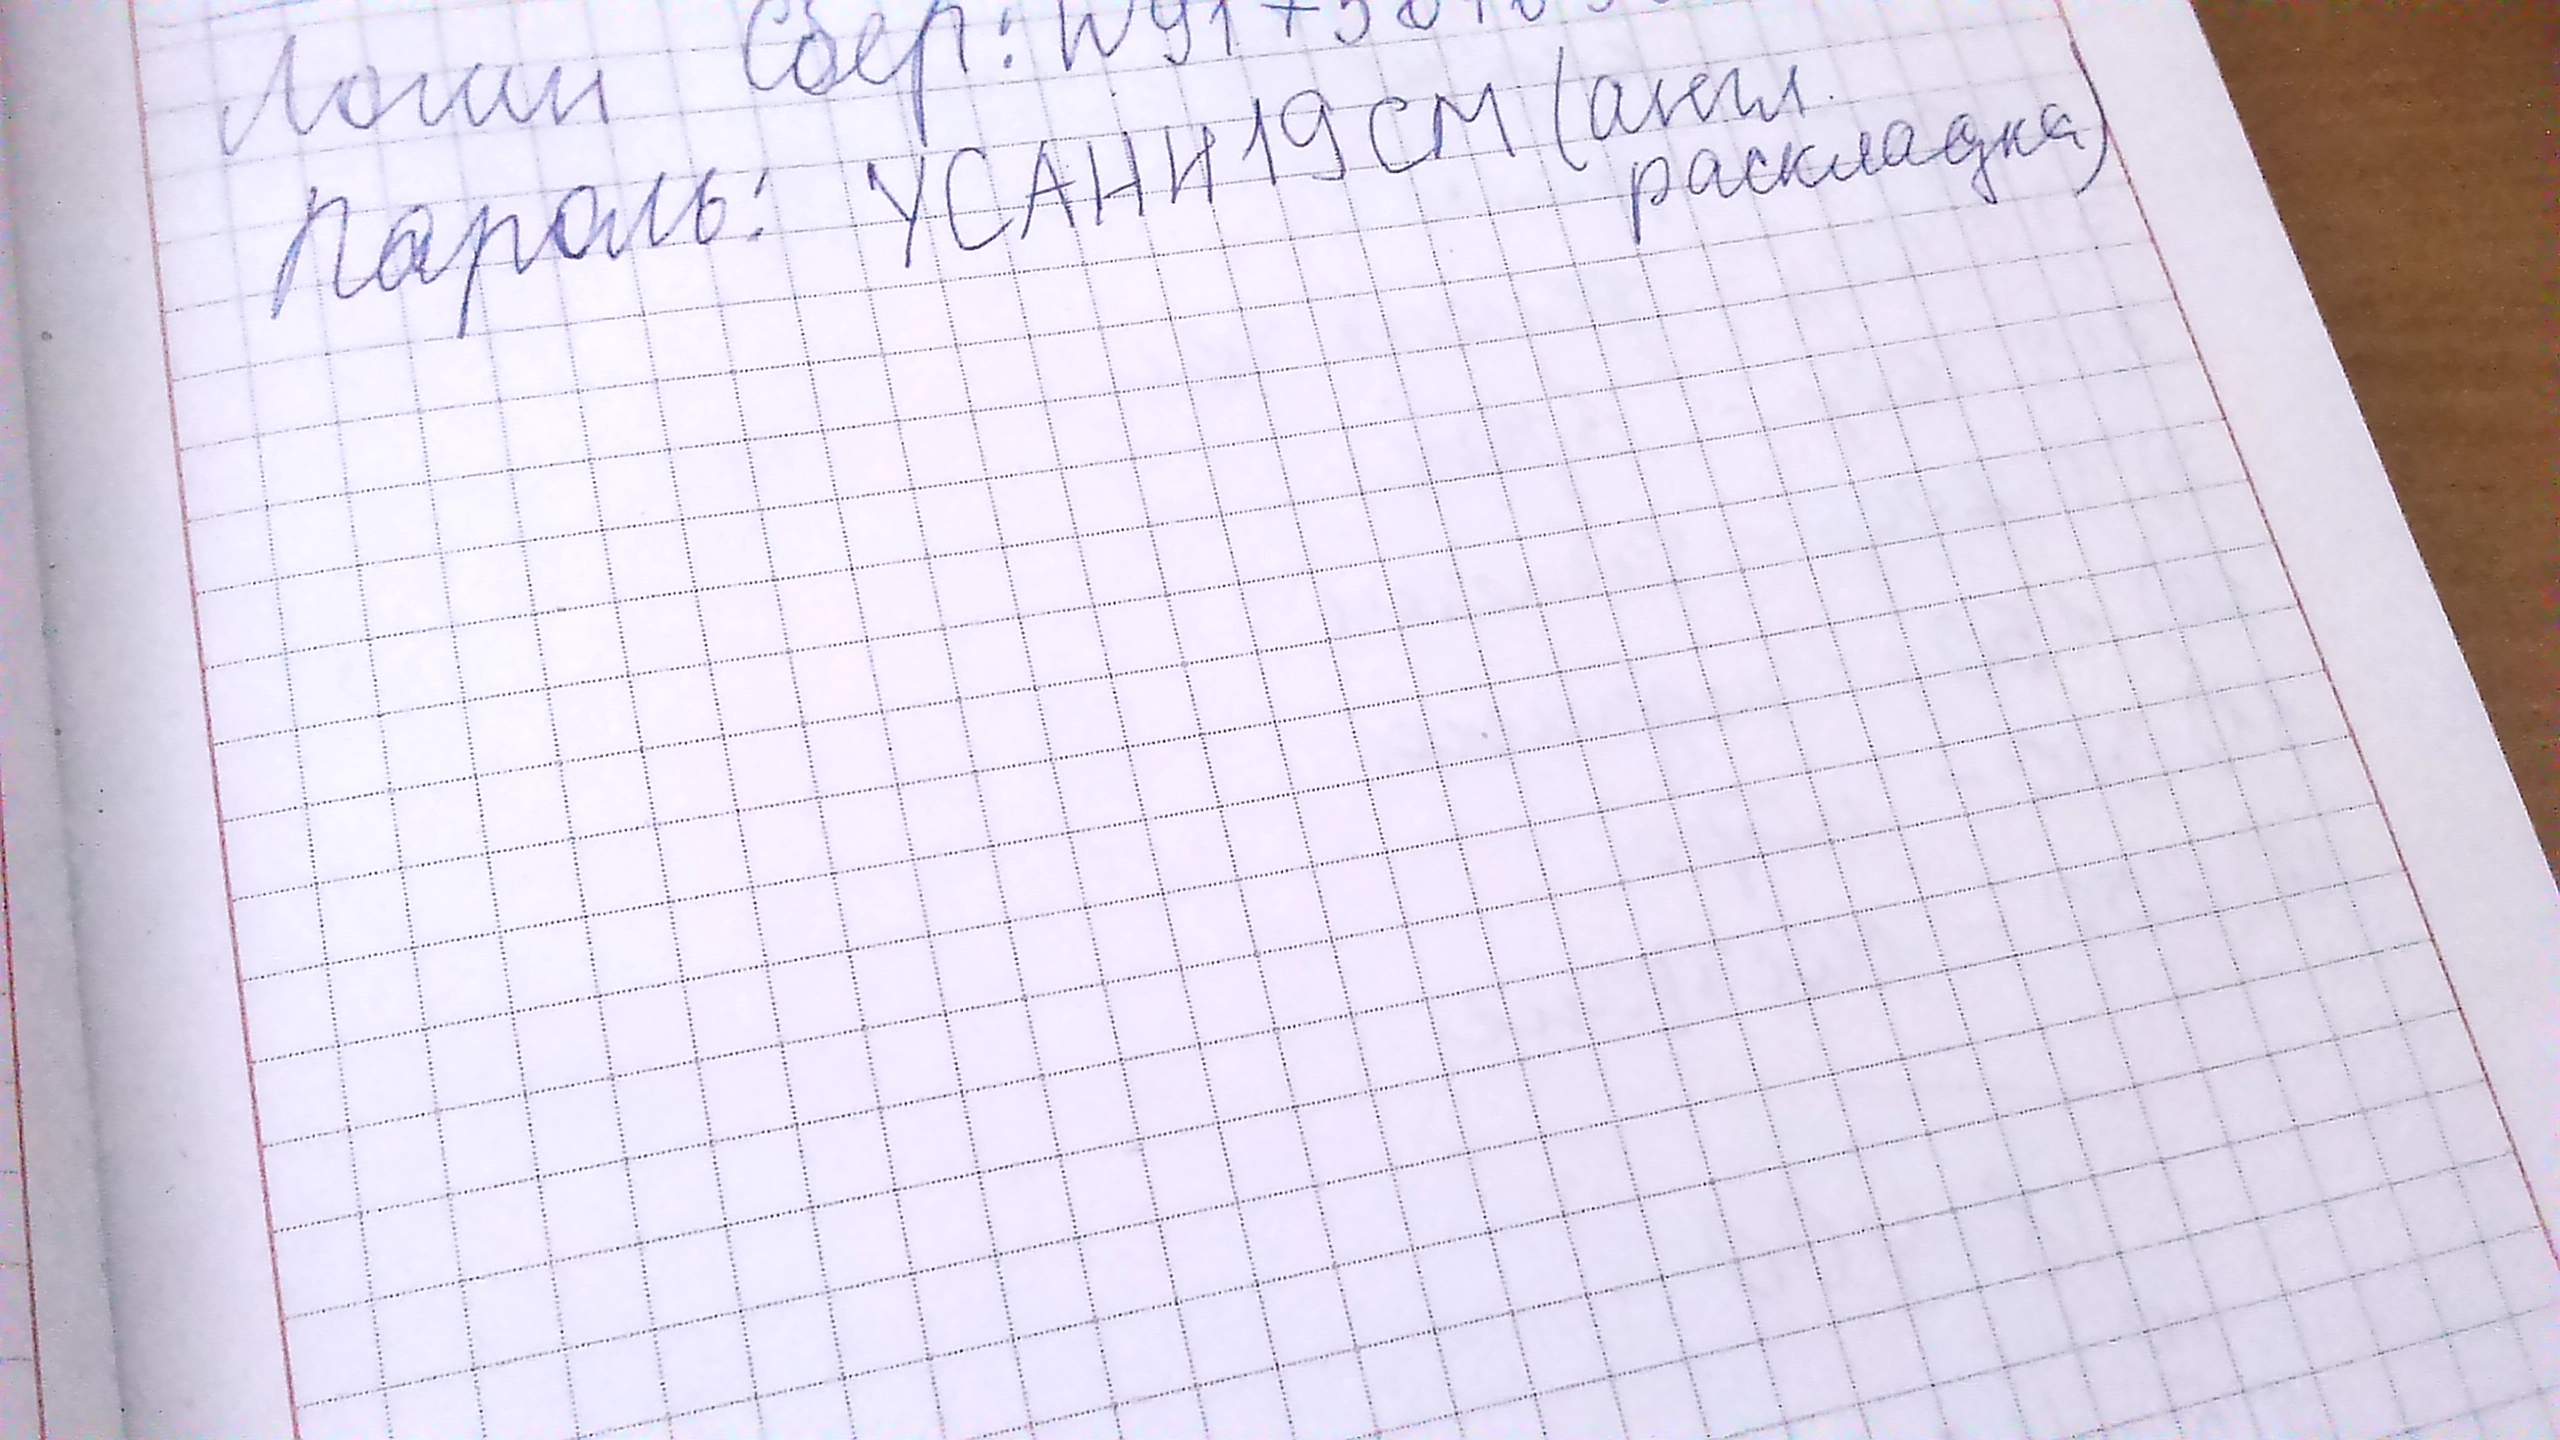 Логин Сбер:
Пароль: УСАНИ19СМ (англ.
раскладка)